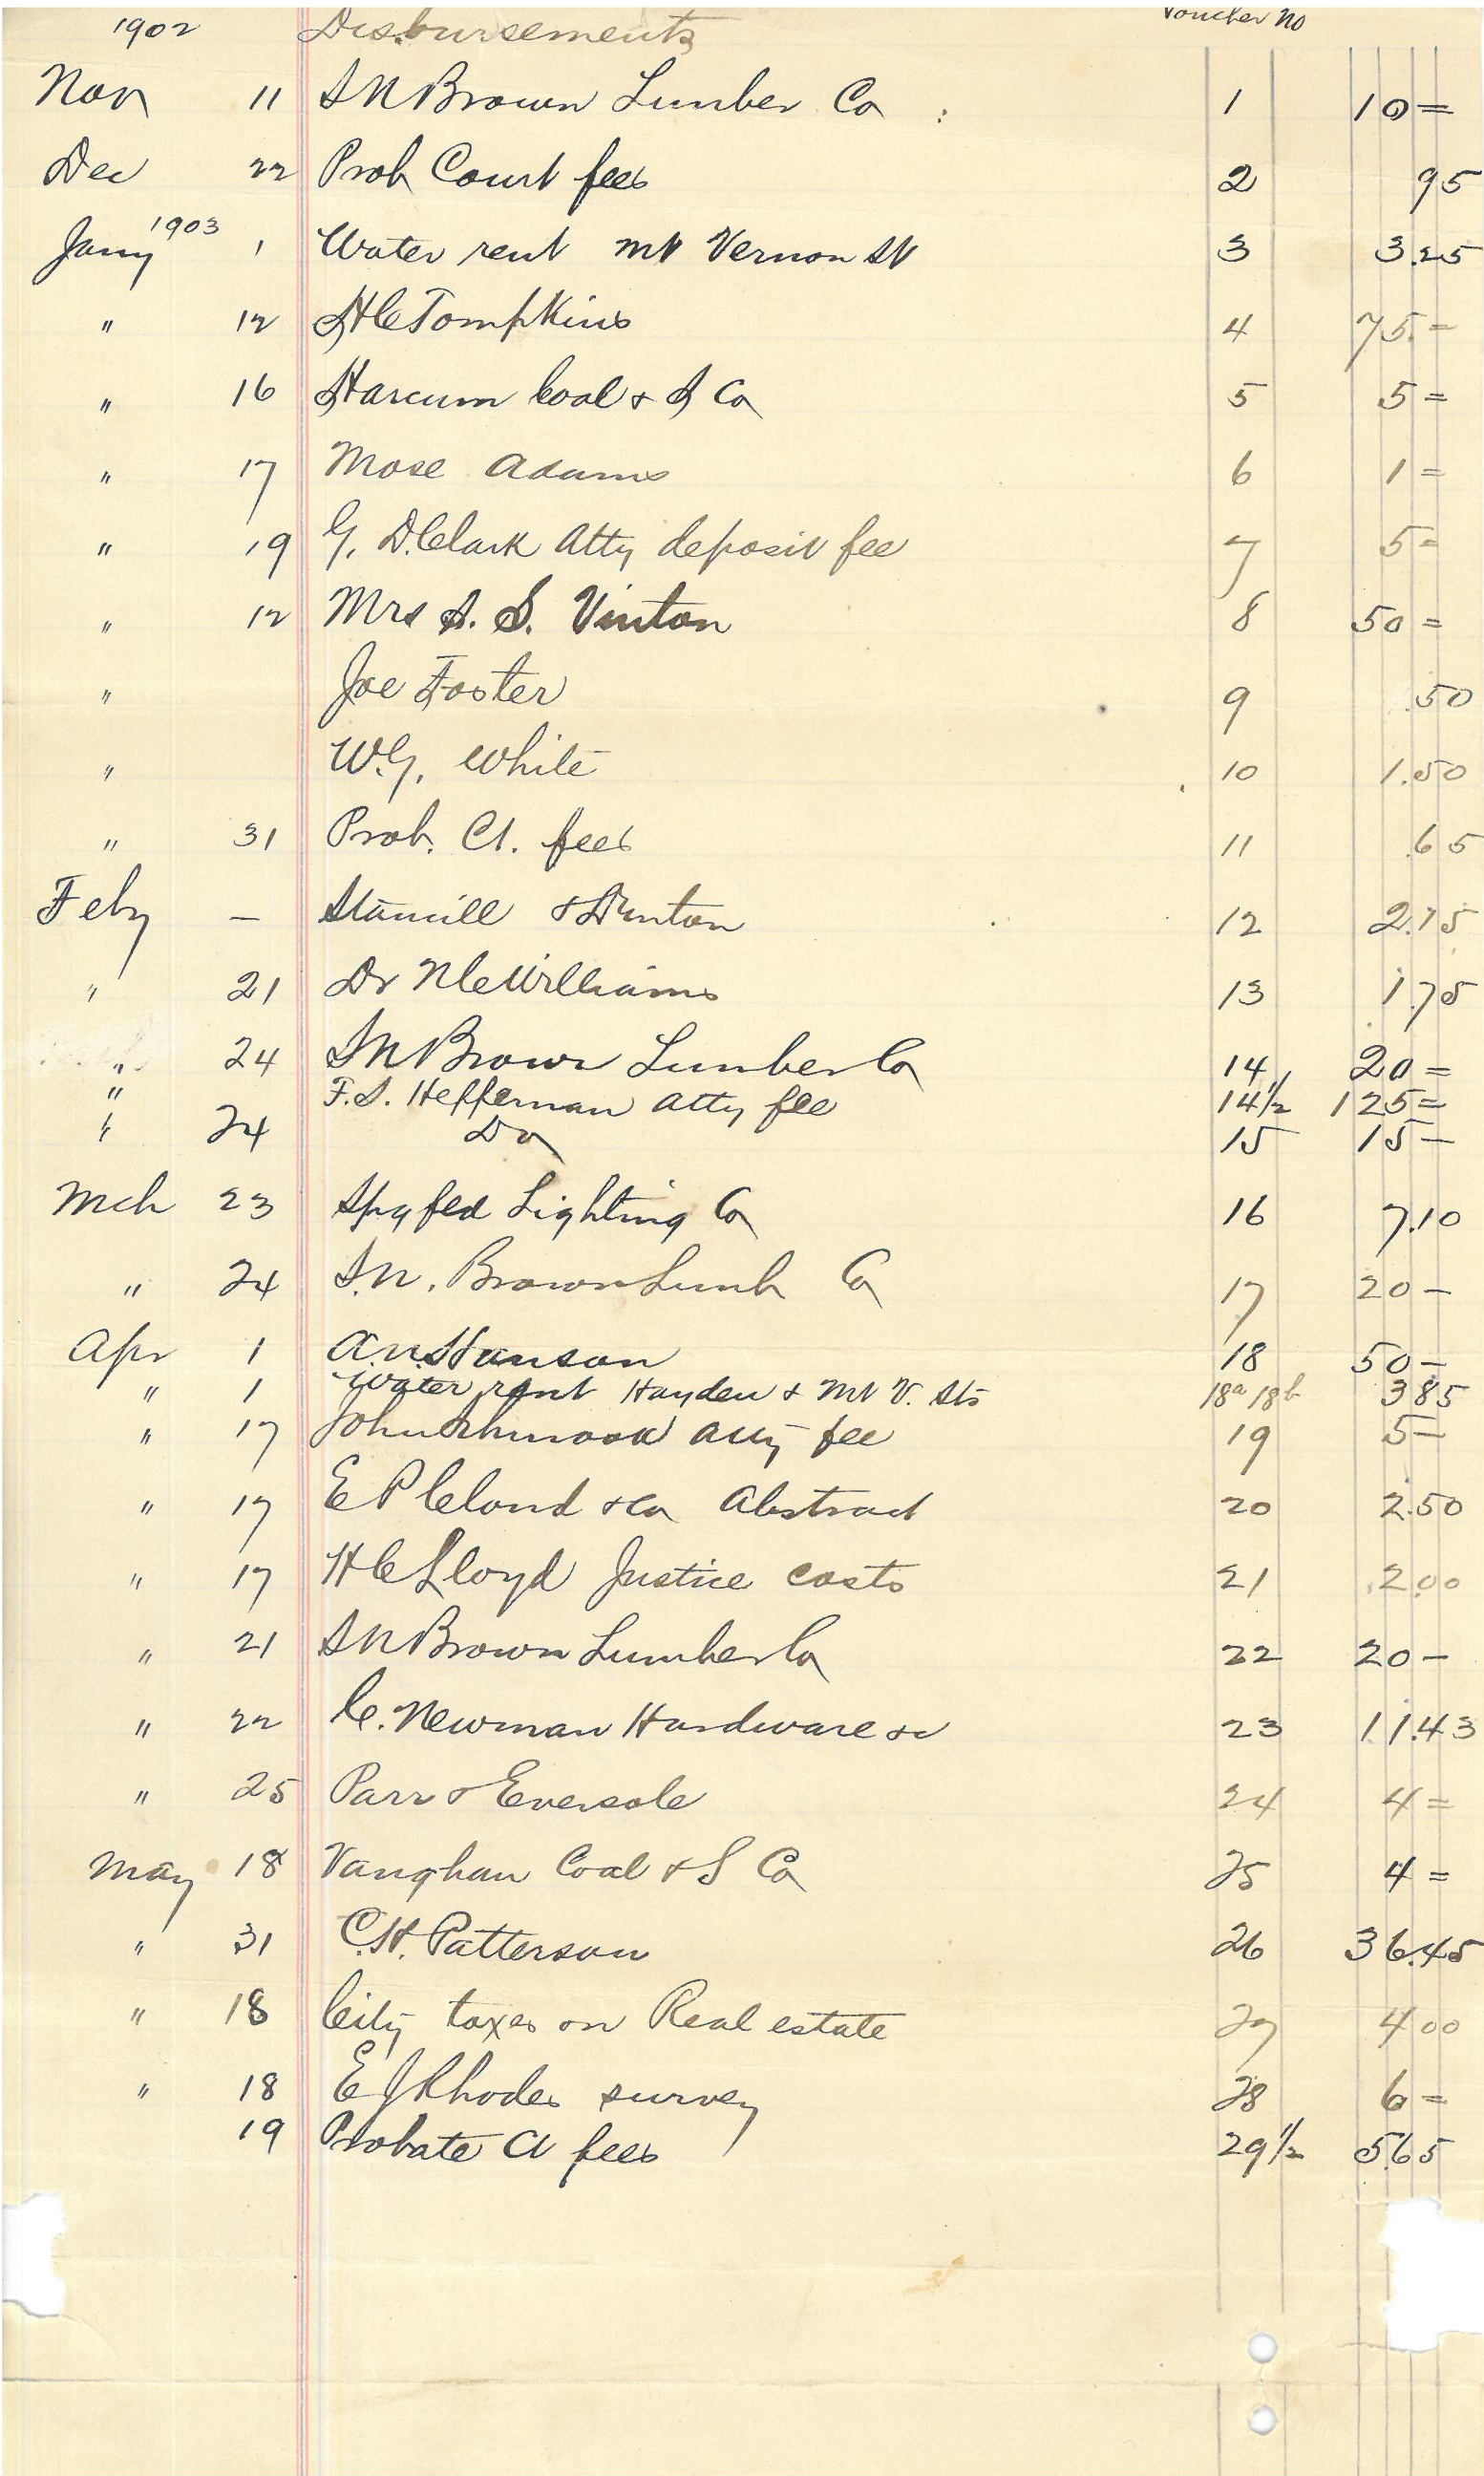 1902 Disbursements Voucher No
Nov 11 S N Brown Lumber Co 1 10=
Dec 22 Prob Court fees 2 95
1903
Jany 1 Water rent Mt Vernon St 3 3.25
" 12 H C Tompkins 4 75.=
" 16 Harcum Coal & S Co 5 5=
" 17 Mose Adams 6 1=
" 19 G. D. Clark Atty deposit fee 7 5=
" 12 Mrs S. S. Vinton 8 50=
" Joe Foster 9 .50
" W.G. White 10 1.50
" 31 Prob. Ct. fees 11 .65
Feby — & 12 2.75
" 21 Dr Williams 13 1.75
" 24 S N Brown Lumber Co 14 20=
" F.S. Heffernan Atty fee 14½ 125=
" 24 Do 15 15—
Mch 23 Spgfed Lighting Co 16 7.10
" 24 S.N. Brown Lumb Co 17 20—
Apr 1 A.N. Hanson 18 50—
" 1 Water rent Hayden & Mt V. Sts 18a 18b 3 85
" 17 John Atty fee 19 5—
" 17 E P Cloud & Co Abstract 20 2.50
" 17 H C Lloyd Justice costs 21 2.00
" 21 S N Brown Lumber Co 22 20—
" 22 C. Newman Hardware &c 23 11.43
" 25 Parr & Eversole 24 4=
May 18 Vaughan Coal & S Co 25 4=
" 31 C.H. Patterson 26 36.45
" 18 City taxes on Real estate 27 4 00
" 18 E J Rhodes survey 28 6=
19 Probate Ct fees 29½ 5.65